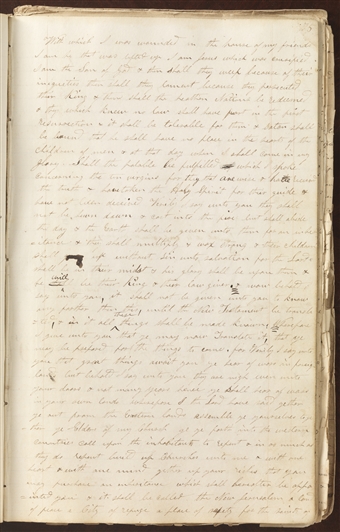 with which I was wounded in the house of my friends
I am he that was lifted up I am Jesus which was crucified
I am the Son of God & then shall they weep because of their
iniquities then shall they lament because they persecuted
their King & then shall the heathen Nations be redeemed
& they which knew no law shall have part in the first
resurrection & it shall be tolerable for them & Satan shall
be bound that he shall have no place in the hearts of the
children of men & at that day when I shall come in my
glory shall the parable be fulfilled which I spake
concerning the ten virgins for they that are wise & have received
the truth & have taken the Holy Spirit for their guide &
have not been deceived Verily I say unto you they shall
not be hewn down & cast into the fire but shall abide
the day & the Earth shall be given unto them for an
& they shall multiply & wax strong & their children
shall up without sin unto salvation for the Lord
shall be in their midst & his glory shall be upon them &
he will be their King & their law giver & now behold I
say unto you it shall not be given unto you to know
any further than this until the New Testament be translated
& in it all these things shall be made known wherefore
I give unto you that ye may now translate it that ye
may be prepared for the things to come for Verily I say unto
you that great things await you ye hear of wars in foreign
lands but behold I say unto you they are nigh even unto
your doors & not many years hence ye shall hear of wars
in your own lands wherefore I the Lord have said gather
ye out from the Eastern lands assemble ye yourselves together
ye Elders of my church go ye forth into the western
countries call upon the inhabitants to repent & in as much as
they do repent build up Churches unto me & with one
heart & with one mind gather up your riches that ye
may purchase an inheritance which shall hereafter be appointed
you & it shall be called the New Jerusalem a land
of peace a City of refuge a place of safety for the saints of